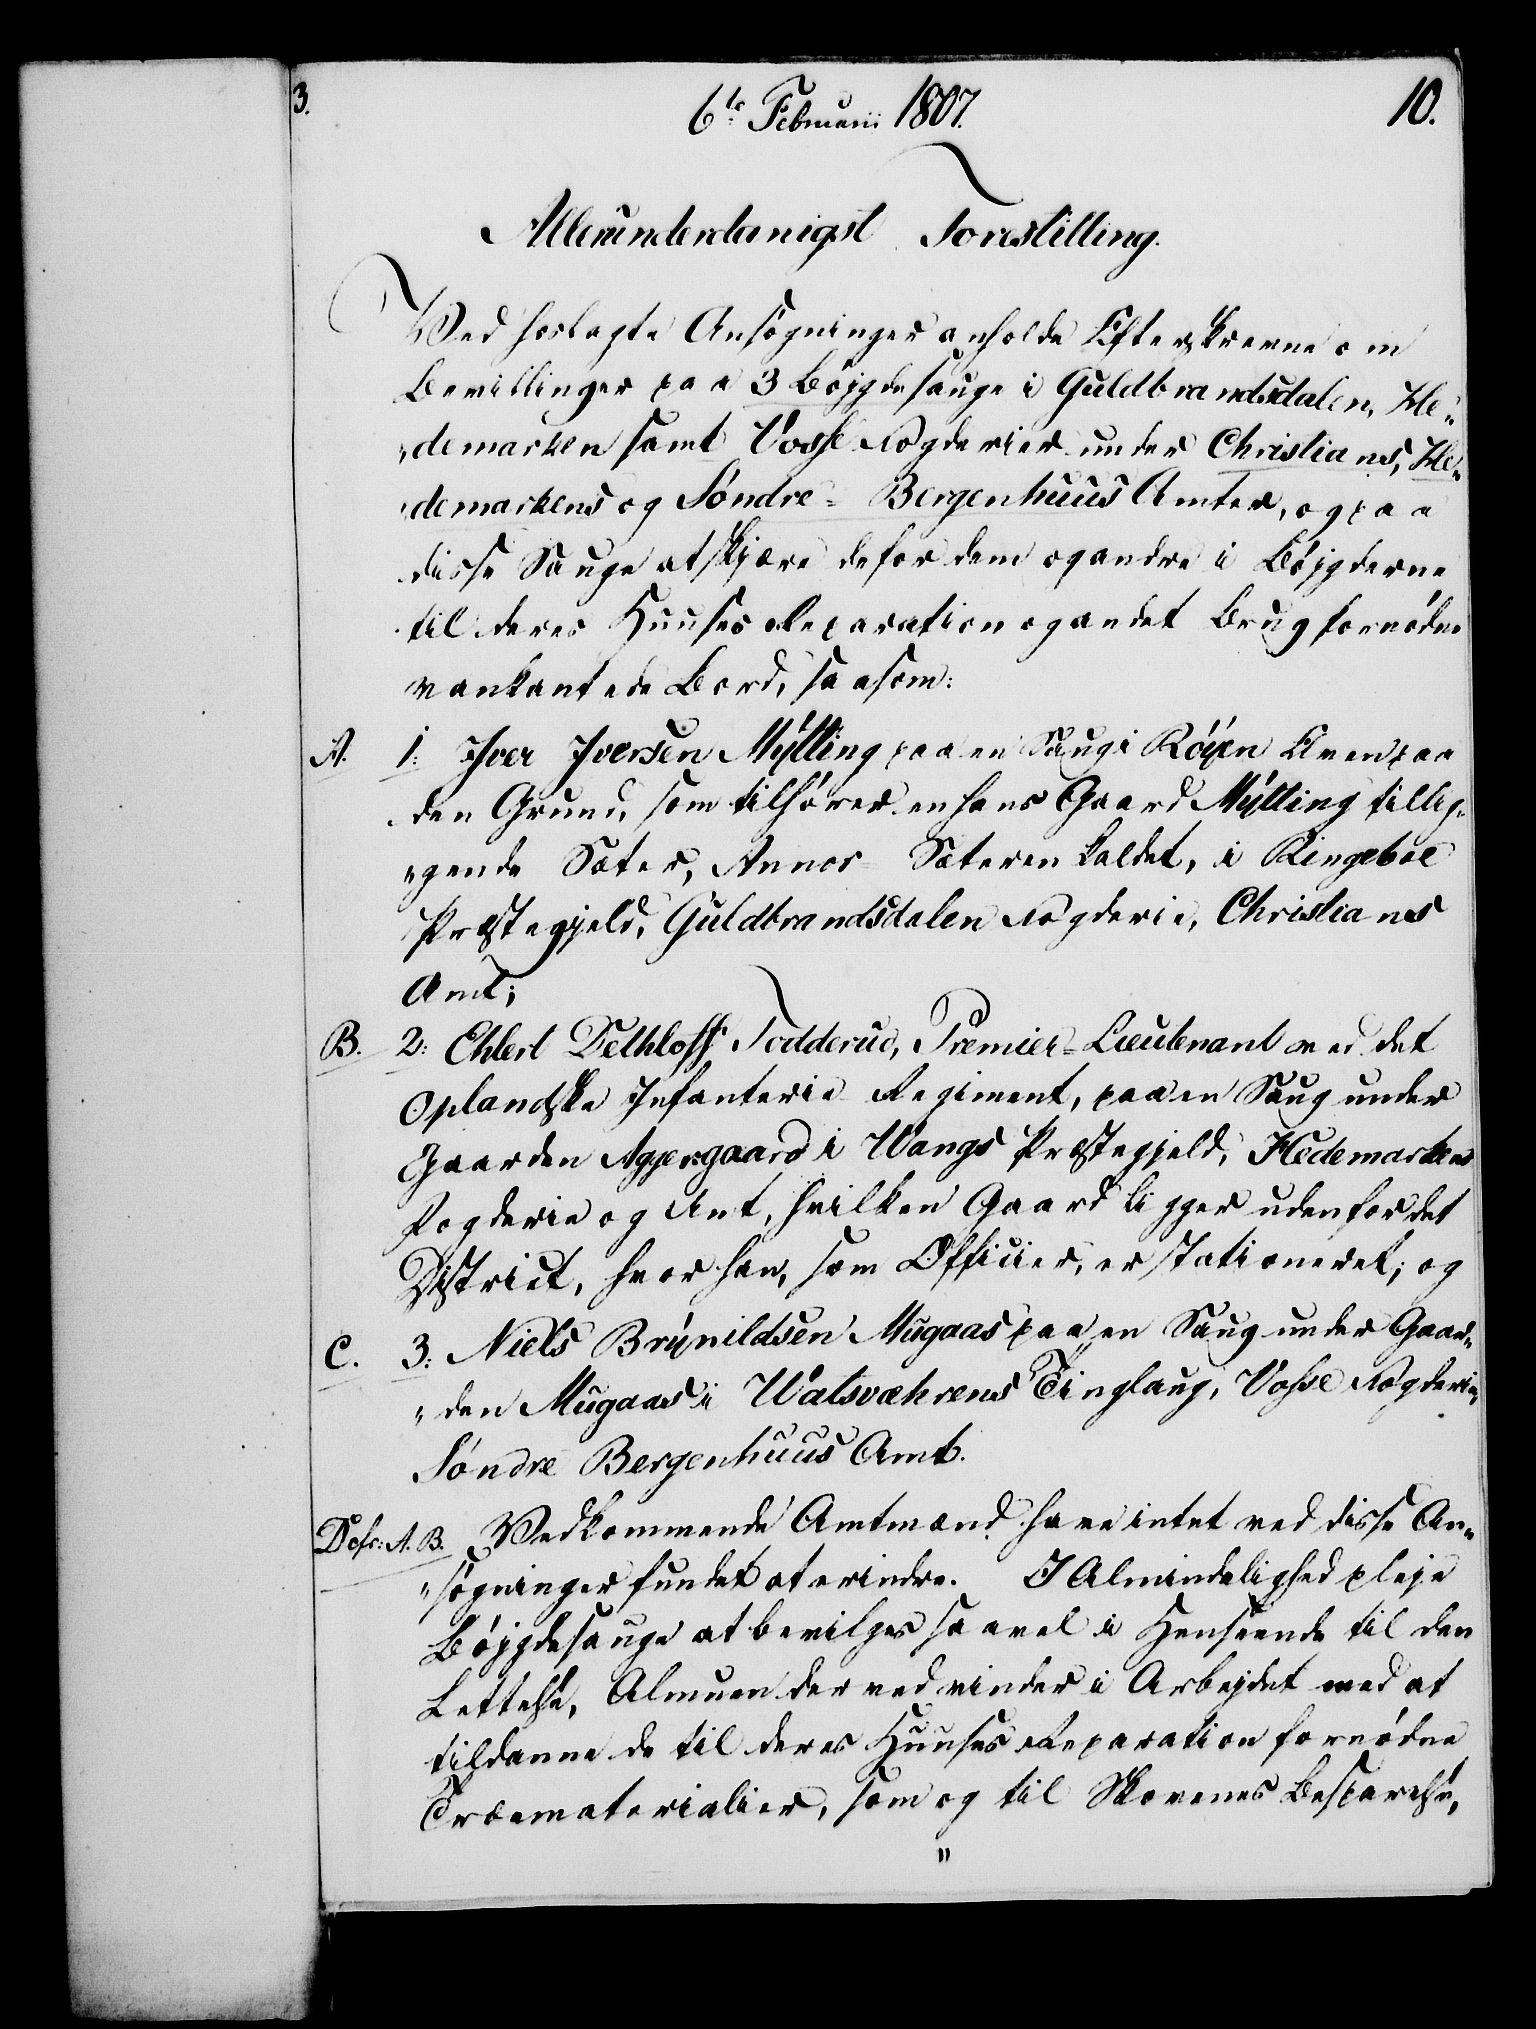 3.
6te Februari 1807.
10.
Allerunderdanigst Forestilling.
Ved hoslagte Ansøgninger anholde Efterskrevne om
Bevillinger paa 3 Bøjgdesauge i Guldbrandsdalen, He„
„demarken samt Vosse Fogderier under Christians, He„
„demarkens og Søndre-Bergenhuus Amter, og paa
disse Sauge at skjære de for dem og andre i Bøjgderne
til deres Huuses Reparation og andet Brug fornødne
vankantede Bord, saasom:
A. 1: Iver Iversen Mÿtting paa en Saug i Elven paa
den Grund, som tilhører en hans Gaard Mÿtting tillig„
„gende Sæter, Annor-Sæteren kaldet, i Ringeboe
Præstegjeld, Guldbrandsdalen Fogderie, Christians
Amt;
B. 2: Ehlert Dethloff Todderud, Premier-Lieutenant ved det
Oplandske Infanterie Regiment, paa en Saug under
Gaarden Aggersgaard i Wangs Præstegjeld, Hedemarkens
Fogderie og Amt, hvilken Gaard ligger udenfor det
District, hvor han, som Officier, er stationeret; og
C. 3: Niels Brÿnildsen Mugaas paa en Saug under Gaar„
„den Mugaas i Watsvæhrens Tinglaug, Vosse Fogderie,
Søndre Bergenhuus Amt.
Vedkommende Amtmænd have intet ved disse An„
„søgninger fundet at erindre. I Almindelighed pleje
Bøjgdesauge at bevilges saavel i Henseende til den
Lettelse, Almuen derved vinder i Arbejdet med at
tildanne de til deres Huuses Reparation fornødne
Træematerialier, som og til Skovenes Besparelse,
"